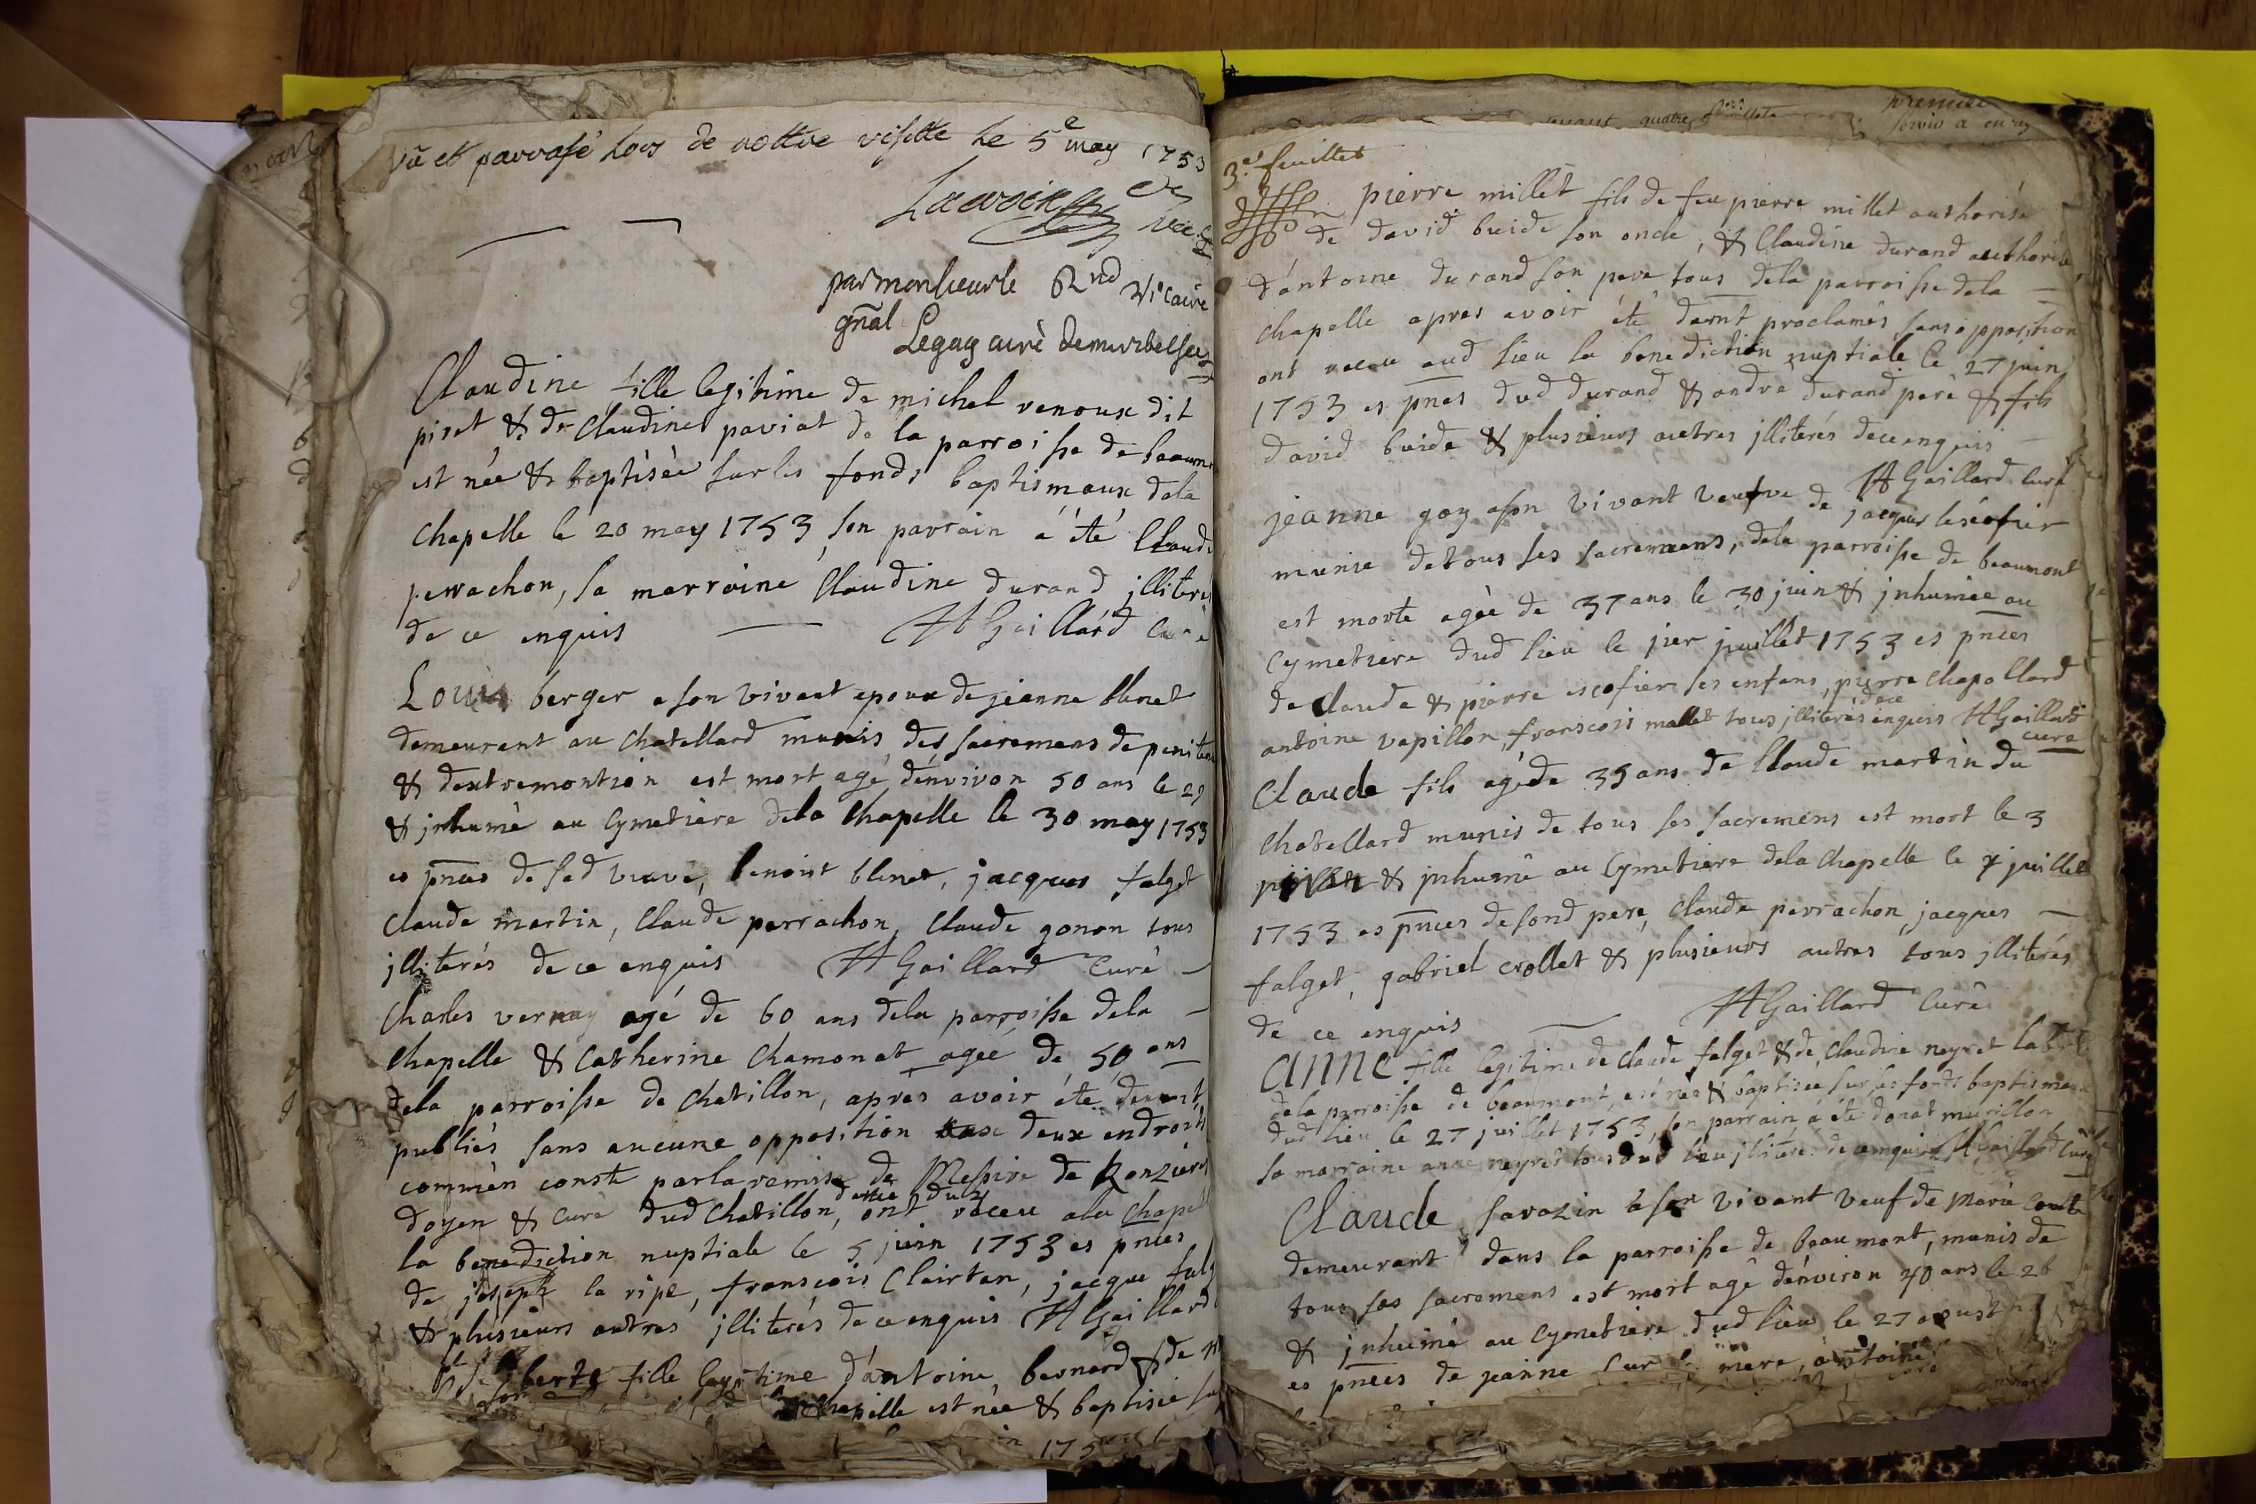 vû et parrafé Lors de nottre visitte Le 5e may 1753
par monsieur le Rnd vicaire
gñal
Legay curè de mirbel
Claudine fille legitime de michel renoux dit
piset & de Claudine paviot de la parroisse de beaum
est née & baptisèe sur les fonds baptismaux dela
Chapelle le 20 may 1753, son parrain á été Claude
perrachon, sa marraine Claudine durand jlliteré
de ce enquis HGaillard Curé
Louis berger a son vivant epoux de jeanne blinet
demeurant au chatellard munis des sacremens de penitan
& dextremontion est mort agé dénviron 50 ans le 29
& jnhumè au Cymetiere dela Chapelle le 30 may 1753
es pñces de sad veuve, benoist blinet, jacques falget
Claude martin, Claude perrachon, Claude gonon tous
jlliterés de ce enquis HGaillard Curè
Charles vernay agé de 60 ans dela parroisse dela
Chapelle & Catherine Chamonat ageé de 50 ans
dela parroisse de Chatillon, après avoir été
publiés sans aucune opposition deux endroits
commèn conste parla remise de Messire de Ronzieres
doyen & curé dud Chatillon, ont receu ala Chapel
la benediction nuptiale le 5 juin 1753 es pnces
de joseph la ripe, françois Clairtan, jacque falg
& plusieurs autres jlliterés de ce enquis HGaillard
fille legitime dántoine bernard & de
Chapelle est née & baptisée su
175
premier
quatre
3e feuillet
pierre millet fils de feu pierre millet authorisé
de david buide son oncle, & Claudine durand authorisée
dántoine durand son pere tous dela parroisse dela
Chapelle apres avoir été proclamés sans opposition
ont receu aud lieu la benediction nuptiale le 27 juin
1753 es pnes dud durand & andré durand peré & fils
david buide & plusieurs autres jlliterés de ce enquis
HGaillard Curé
jeanne goy a son vivant veufve de jacque lescofier
munie de tous ses sacremens, dela parroisse de beaumont
est morte agèe de 37 ans le 30 juin & jnhumée au
Cymetiere dud lieu le jier juillet 1753 es pnces
de Claude & pierre escofier ses enfans, pierre Chapollard
antoine vapillon, franscois mallet tous jlliterés de ce enquis HGaillard
curé
Claude fils agé de 35 ans de Claude martin du
Chatellard munis de tous ses sacremens est mort le 3
& jnhumé au Cymetiere dela Chapelle le 4 juillet
1753 es pñces de sond pere, Claude perrachon, jacques
falget, gabriel crollet & plusieurs autres tous jlliterés
de ce enquis HGaillard Curé
Anne fille legitime de Claude falget & de Claudine neyret
dela parroisse de beaumont, est née & baptisée sur les fonds baptismaux
dud lieu le 27 juillet 1753, son parrain á été donat murillon
sa marraine anne neyret tous dud lieu jlliterés de ce enquis HGaillard Curé
Claude savazin à son vivant veuf de Marie Comte
demeurant dans la parroisse de beaumont, munis de
tous ses sacremens est mort agé dénviron 40 ans le 26
& jnhumé au Cymetiere dud lieu le 27 aoust
es pnces de jeanne mere, antoine